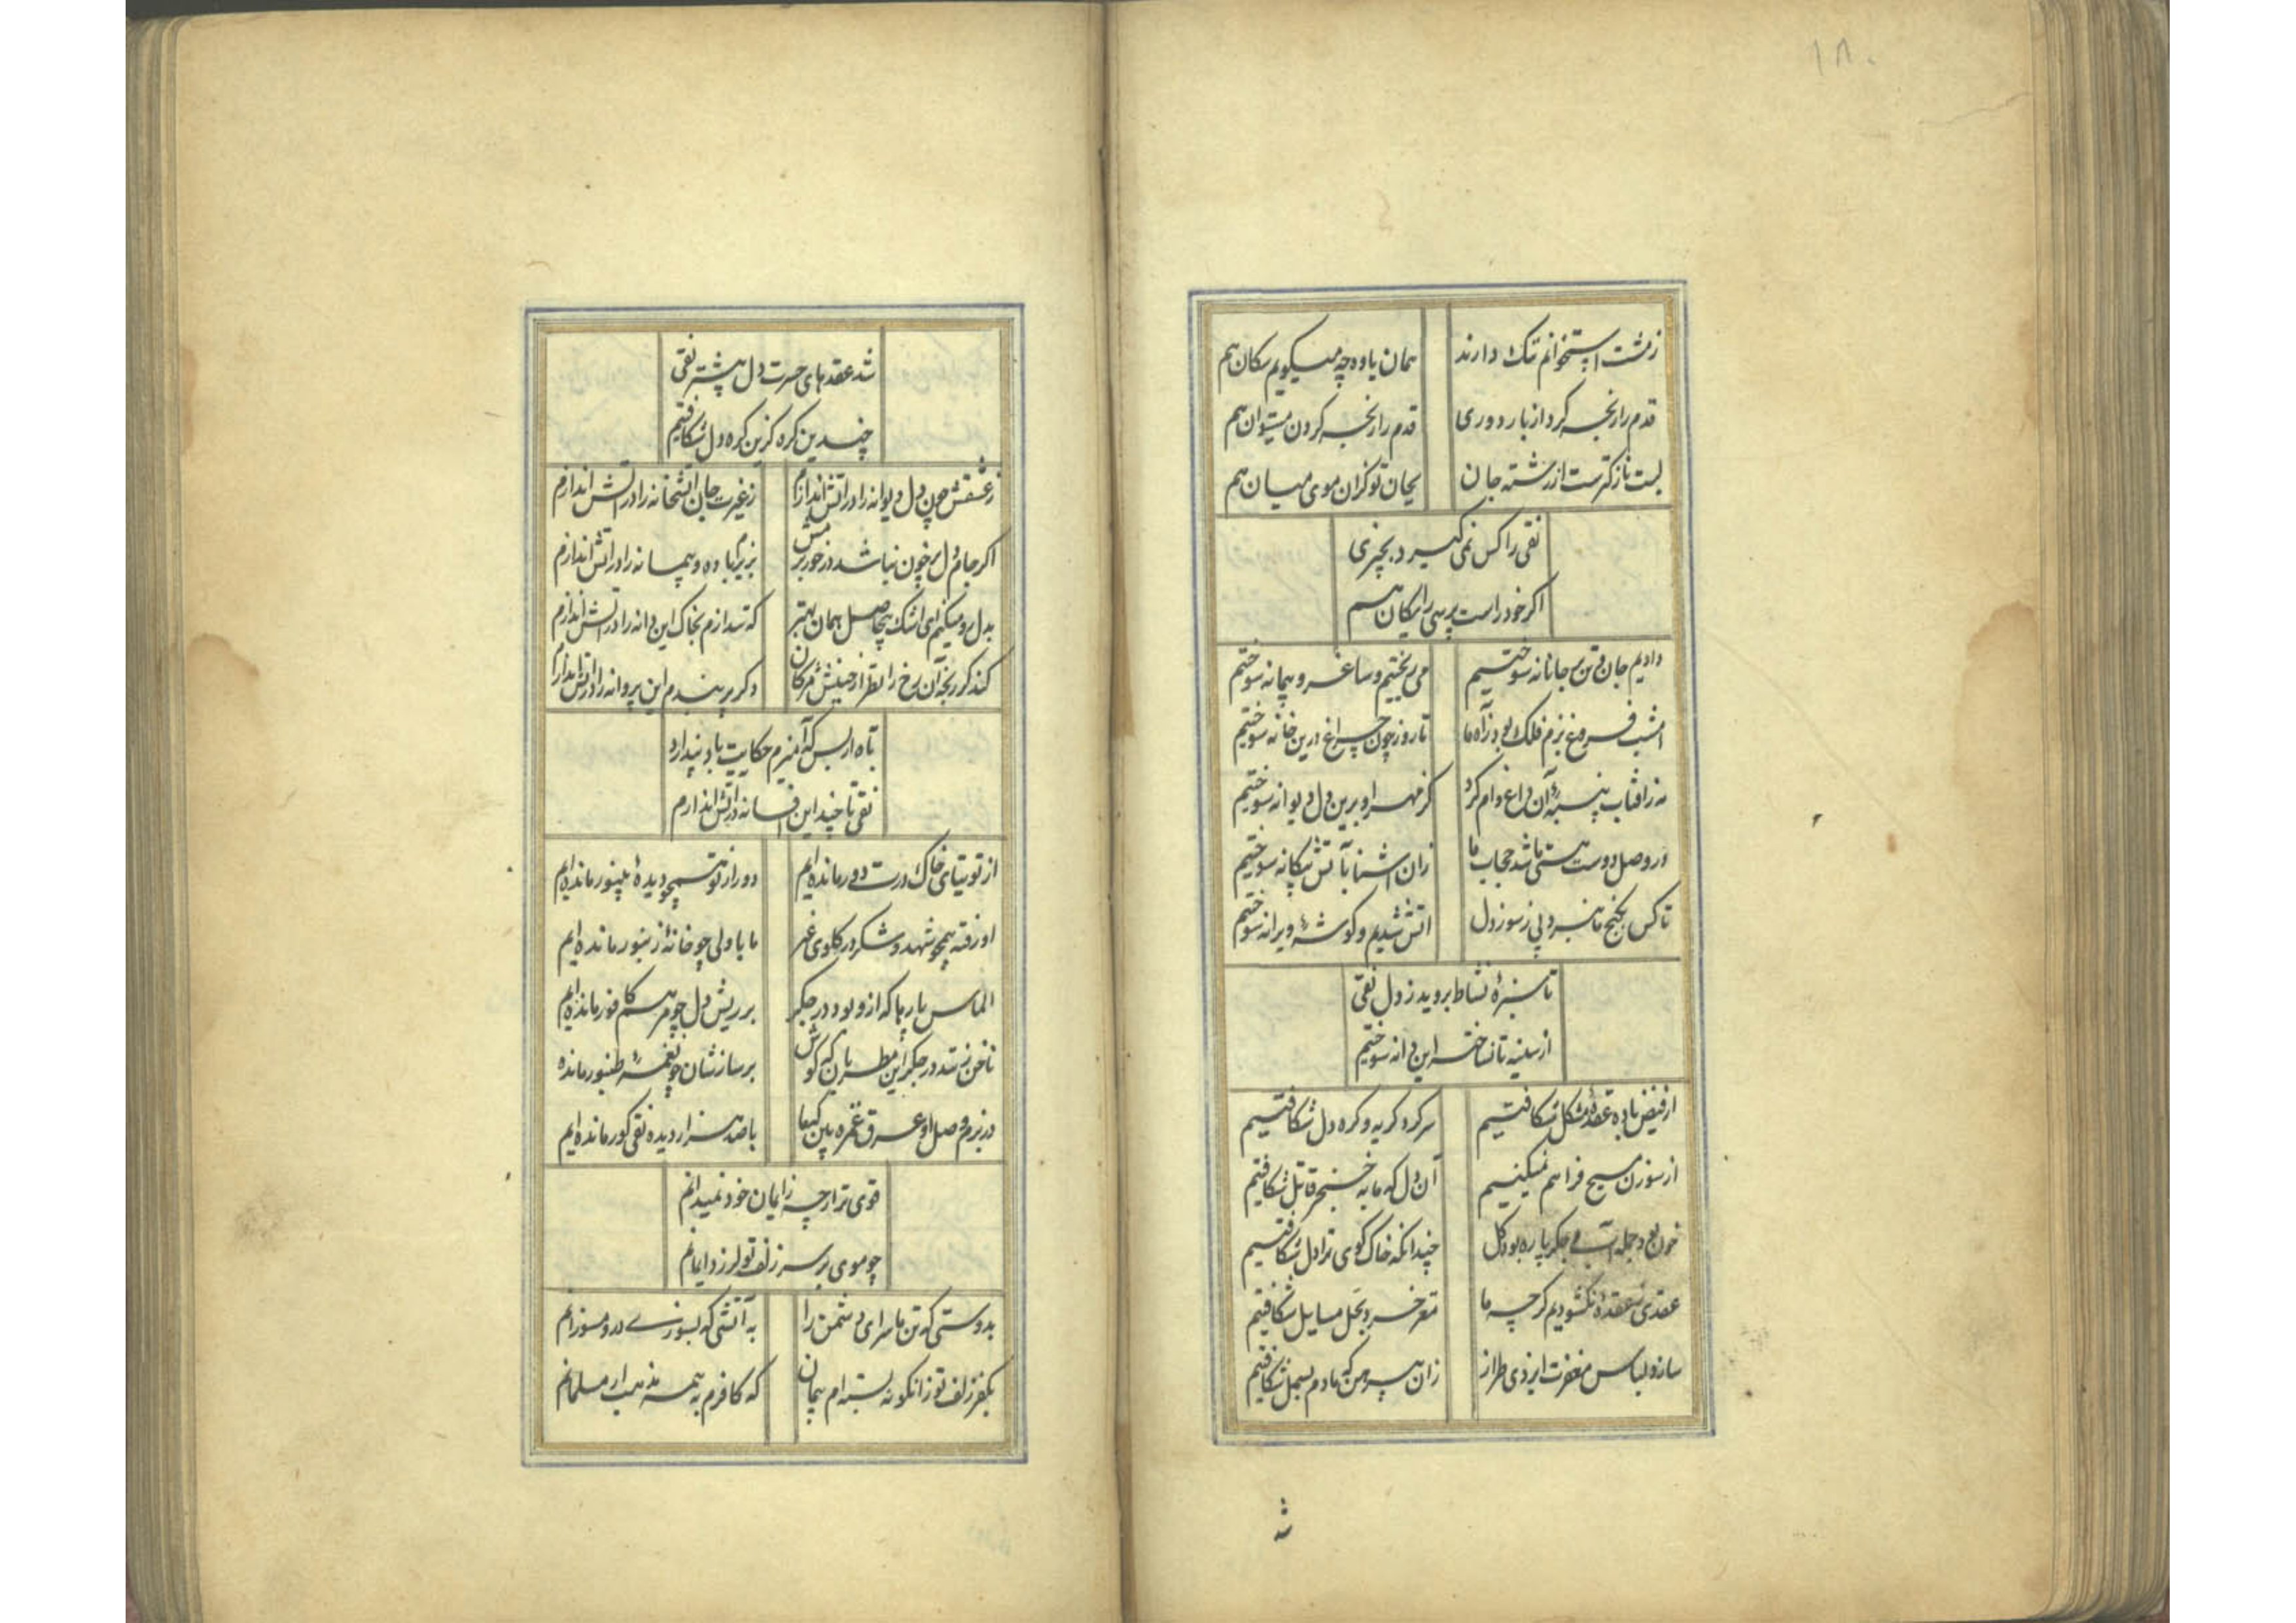 ۱۸۰
زمشت استخوانم ننک دارند همان یا وه چه میکویم سکان هم
قدم را رنجه کرد از بار دوری قدم را رنجه کردن میتوان هم
لبت نازکترست از رشته جان بجان تو کزان موی میان هم
نقی را کس نمی کیرد بچیزی
اکر خود راست پرسی رایکان هم
دادیم جان و تن بی جانانه سوختیم می ریختیم و ساغر و پیمانه سوختیم
امشب فروغ بزم فلک بود ز آه ما تا روز چون چراغ درین خانه سوختیم
نه زافتاب پنبهٔ آن داغ وام کرد کز مهر او برین دل دیوانه سوختیم
در وصل دوست هستی ما شد حجاب ما زان اشنا بآتش بیکانه سوختیم
تا کس بکنج ما نبرد پی ز سوز دل اتش شدیم و کوشهٔ ویرانه سوختیم
تا سبزهٔ نشاط بروید ز دل نقی
از سینه تا نساخته این دانه سوختیم
از فیض باده عقدهٔ مشکل شکافتیم سر کرد کریه و کره دل شکافتیم
از سوزن مسیح فراهم نمیکنیم آن دل که ما به خنجر قاتل شکافتیم
خون بود جمله آب و جکر پاره بود کل چندانکه خاک کوی ترا دل شکافتیم
عقدی ز عقدهٔ نکشودیم کرچه ما مغز خرد بحل مسایل شکافتیم
سازد لباس مغفرت ایزدی طراز زان پیرهن که ما دم بسمل شکافتیم
شد
شد عقدهای حسرت دل بیشتر نقی
چندین کره کزین کره دل شکافتیم
ز عشقش چون دل دیوانه را در اتش اندازم ز غیرت جان اتشخانه را در اتش اندازم
اکر جام دل پرخون نباشد در خور بزمش بزیر باده و پیمانه را در اتش اندازم
بدل رو میکنم ای اشک بیحاصل همان بهتر که تندازم بخاک این دانه را در اتش اندازم
کند کر رنجه آن رخ را نظر از جنبش مژکان دکر پر بندم این پروانه را در اتش اندازم
تاه از بس که آمیزم حکایت باد پندارد
نقی تا چند این افسانه در اتش اندازم
از توتیای خاک درت دور مانده‌ایم دور از تو همچو دیدهٔ بینور مانده‌ایم
او رفته همچو شهد و شکر در کلوی غیر ما با دلی چو خانهٔ زنبور مانده‌ایم
الماس پار پا که ازو بود در جکر بر ریش دل چو مرهم کافور مانده‌ایم
ناخن زنند در جکر این مطربان که کوش بر سازشان چو نغمهٔ طنبور مانده
در بزم وصل او عرق غمزه بین کها با صد هزار دیده نقی کور مانده‌ایم
قوی تر ار چه ز ایمان خود نمیدانم
چو موی بر سر زلف تو لرزد ایمانم
بدوستی که تن ما سرای دشمن را به آتشی که بسوزی درو مسوزانم
بکفر زلف تو زانکونه بسته‌ام پیمان که کافرم به همه مذهب ار مسلمانم